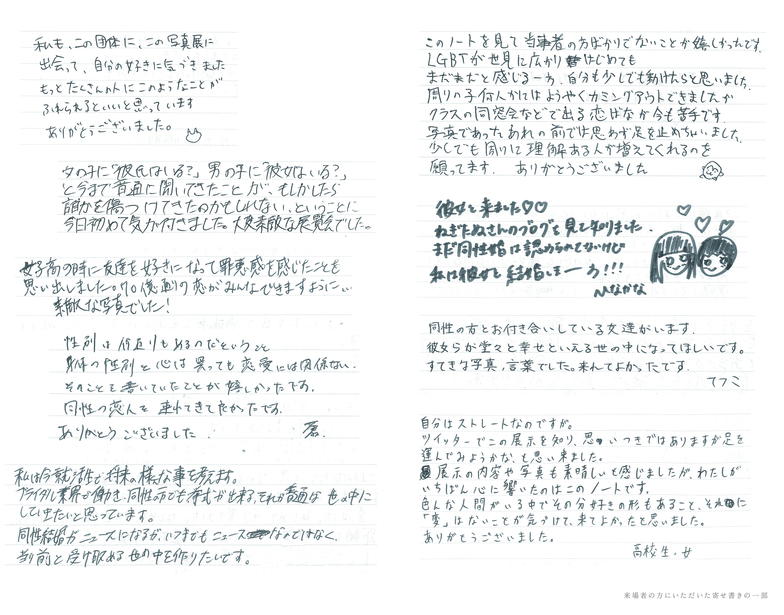 私も、この団体に、この写真展に
出会って、自分の好きに気づきました
もっとたくさんの人にこのようなことが
ふれられるといいと思っています
ありがとうございました。
女の子に「彼氏はいる?」男の子に「彼女はいる?」
と今まで普通に聞いてきたことが、もしかしたら
誰かを傷つけてきたのかもしれない、ということに
今日初めて気が付きました。大変素敵な展覧会でした。
女子高の時に友達を好きになって罪悪感を感じたことを
思い出しました。
恋がみんなできますように…
素敵な写真でした!
性別は何通りもあるのだということ
身体の性別と心は異っても恋愛には関係ない。
そのことを書いていたことが嬉しかったです。
同性の恋人を連れてきてたかったです。
ありがとうございました
私は今就活性で将来の様な事を考えます。
ブライダル業界で働き、同性の方でも挙式が出来る、それが普通な世の中に
していきたいと思っています。
同性結婚がニュースになるが、いつまでもニュースなのではなく、
当り前と受け取れる世の中を作りたいです。
このノートを見て当事者の方ばかりでないことが嬉しかったです。
LGBTが世界に広がりはじめても
まだまだと感じる一方、自分も少しでも動けたらと思いました。
周りの子何人かにはようやくカミングアウトできましたが
クラスの同窓会などで出る恋ばなが今も苦手です。
写真であったあれの前では思わず足を止めちゃいました。
少しでも周りに理解ある人が増えてくれるのを
願ってます。 ありがとうございました
彼女と来ました♡♡
ねぎたぬさんのブログを見て知りました.
まだ同性婚は認められてないけど
私は彼女と結婚しまーす!!!
なかな
同性の方とお付き合いしている友達がいます.
彼女らが堂々と幸せといえる世の中になってほしいです。
すてきな写真,言葉でした。来れてよかったです.
てフミ
自分はストレートなのですが。
ツイッターでこの展示を知り、思いつきではありますが足を
運んでみようかな、と思い来ました。
展示の内容や写真も素晴しいと感じましたが、わたしが
いちばん心に響いたのはこのノートです。
色んな人間がいる中でその分好きの形もあること、それに
「変」はないことが気づけて、来てよかったと思いました。
ありがとうございました。
高校生・女
来場者の方にいただいた寄せ書きの一部